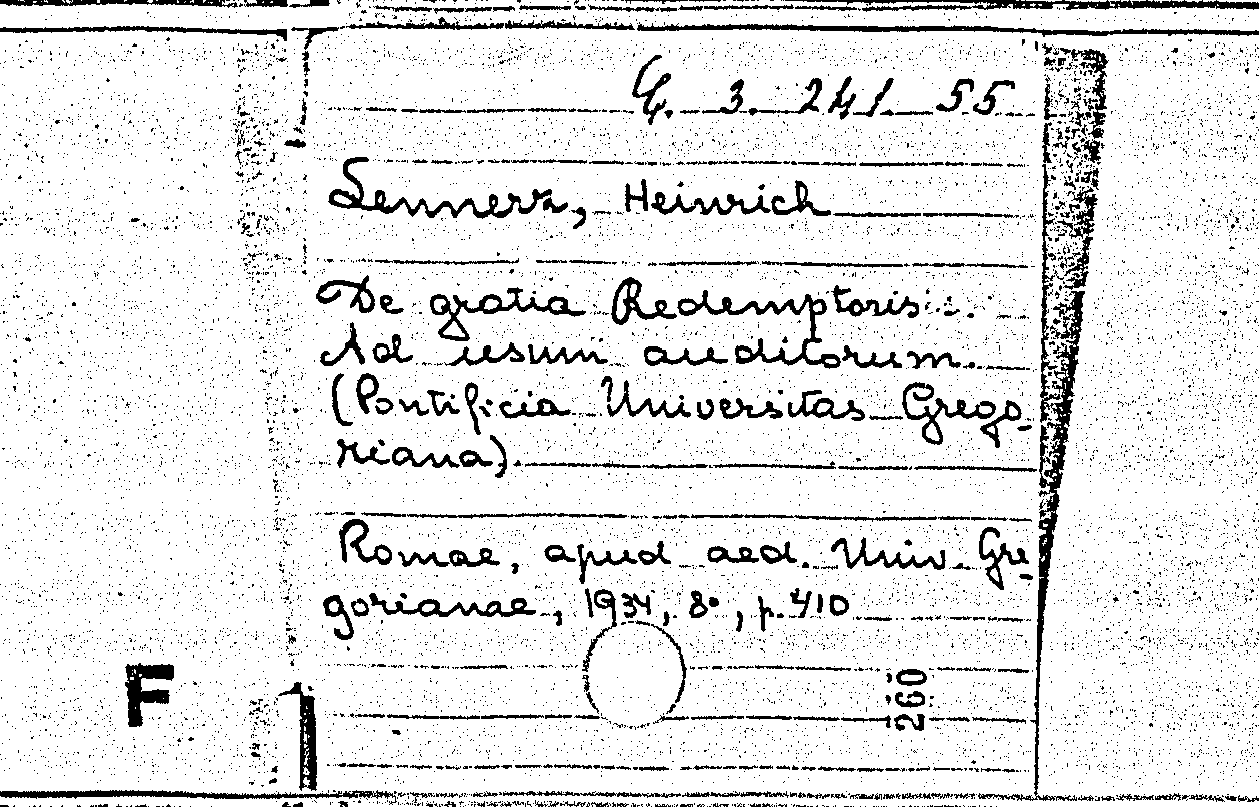 3. 241. 55
Lennerz, Heinrich
De gratia Redemptoris :.
Ad usum auditorum.
(Pontificia Universitas Grego-
riana).
Romae, apud aed. Univ. Gre-
gorianae, 1934, 8°, p. 410
F
260